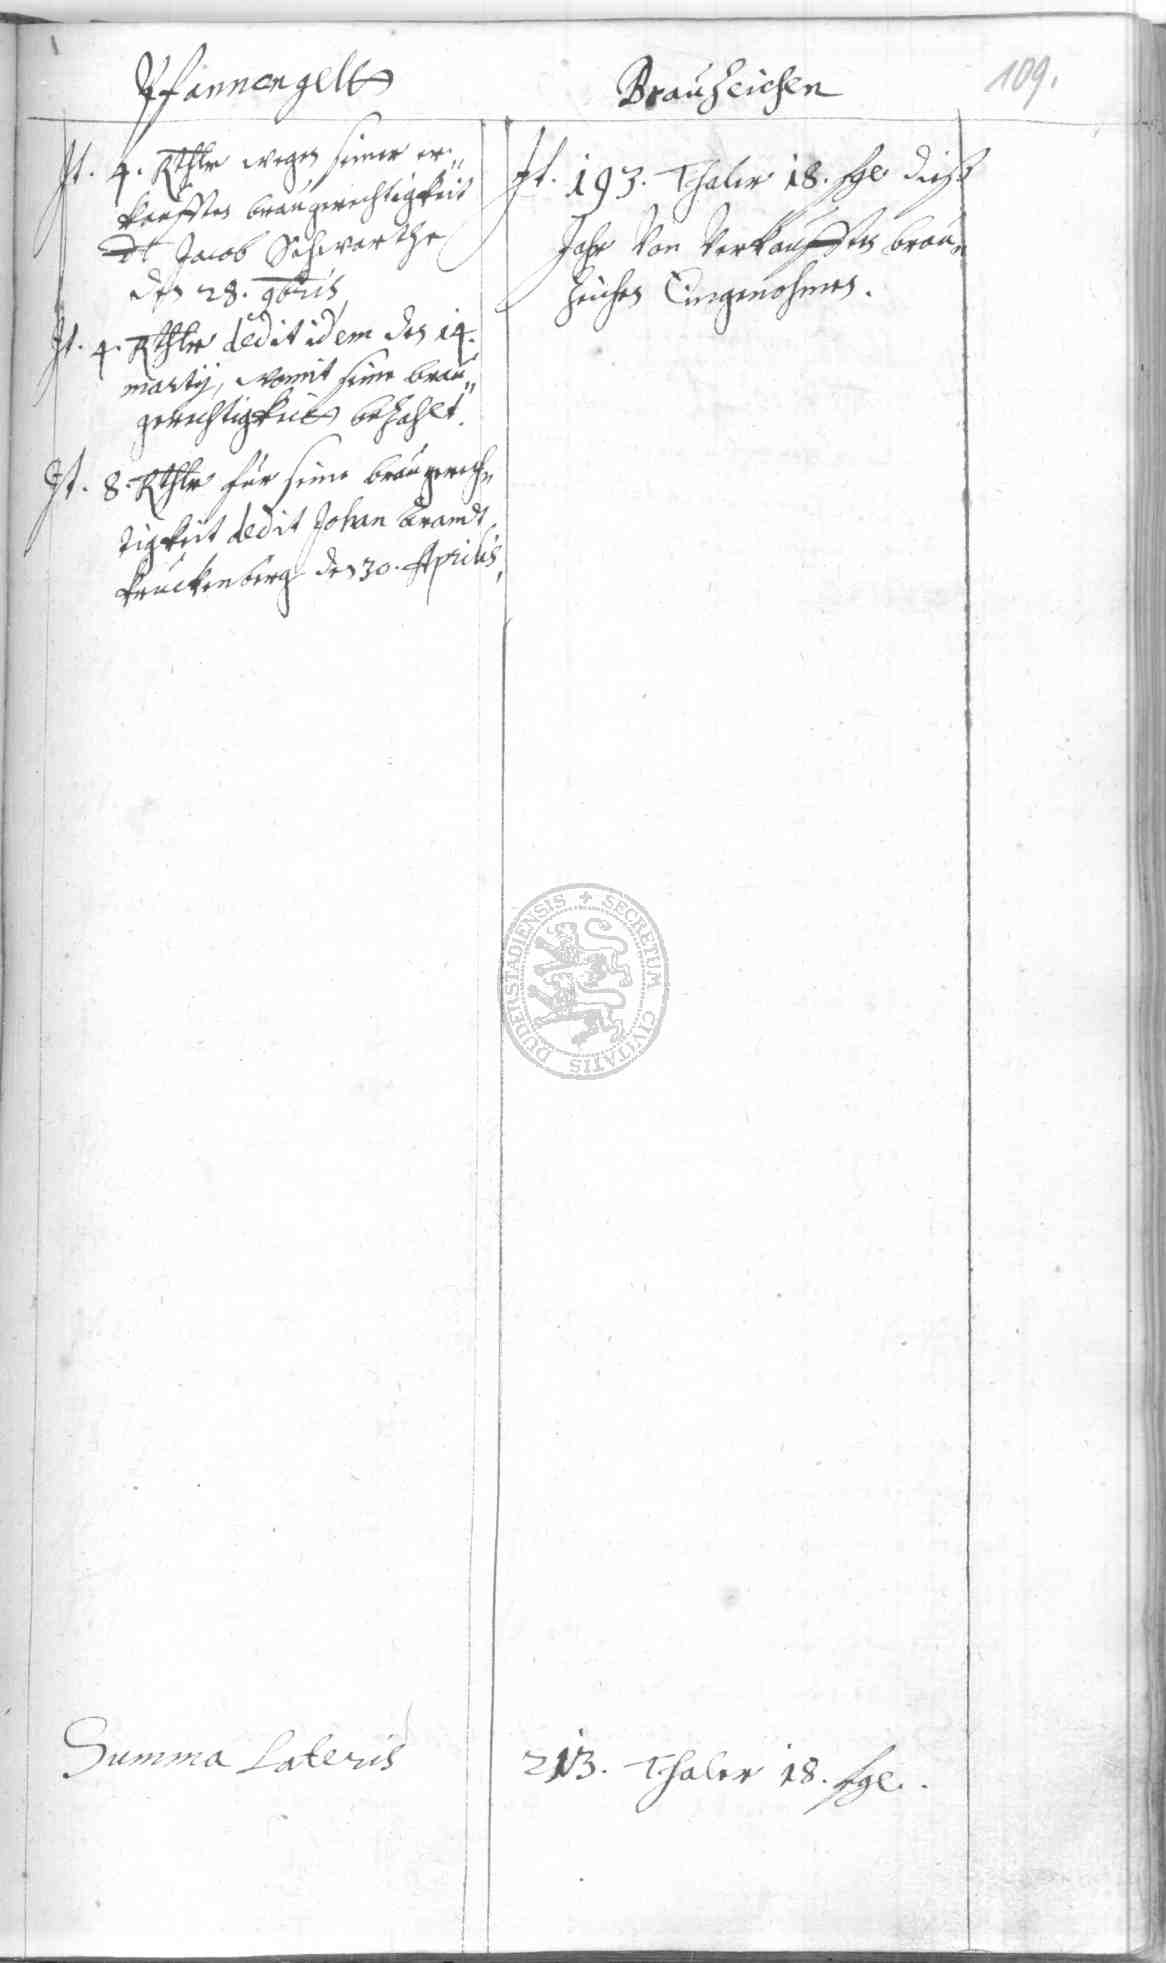 Pfannengelt
Brauzeichen
109.
It. 4. Rthlr wegen seiner er„
kaufften braugerechtigkeit
dt Jacob Schwarthe
den 28. 9bris
It. 4. Rthlr dedit idem den 14.
martij, womit seine brau„
gerechtigkeit bezahlt.
It. 8. Rthlr für seine braugerech„
tigkeit dedit Johan Brandt
Kruckenberg den 30. Aprilis,
It. 193. Thaler 18. sgl dieß
Jahr Von Verkaufften brau„
zeichen Eingenohmen.
DUDERSTADIENSIS + SECRETUM CIVITATIS
Summa Lateris
213. Thaler 18. sgl.